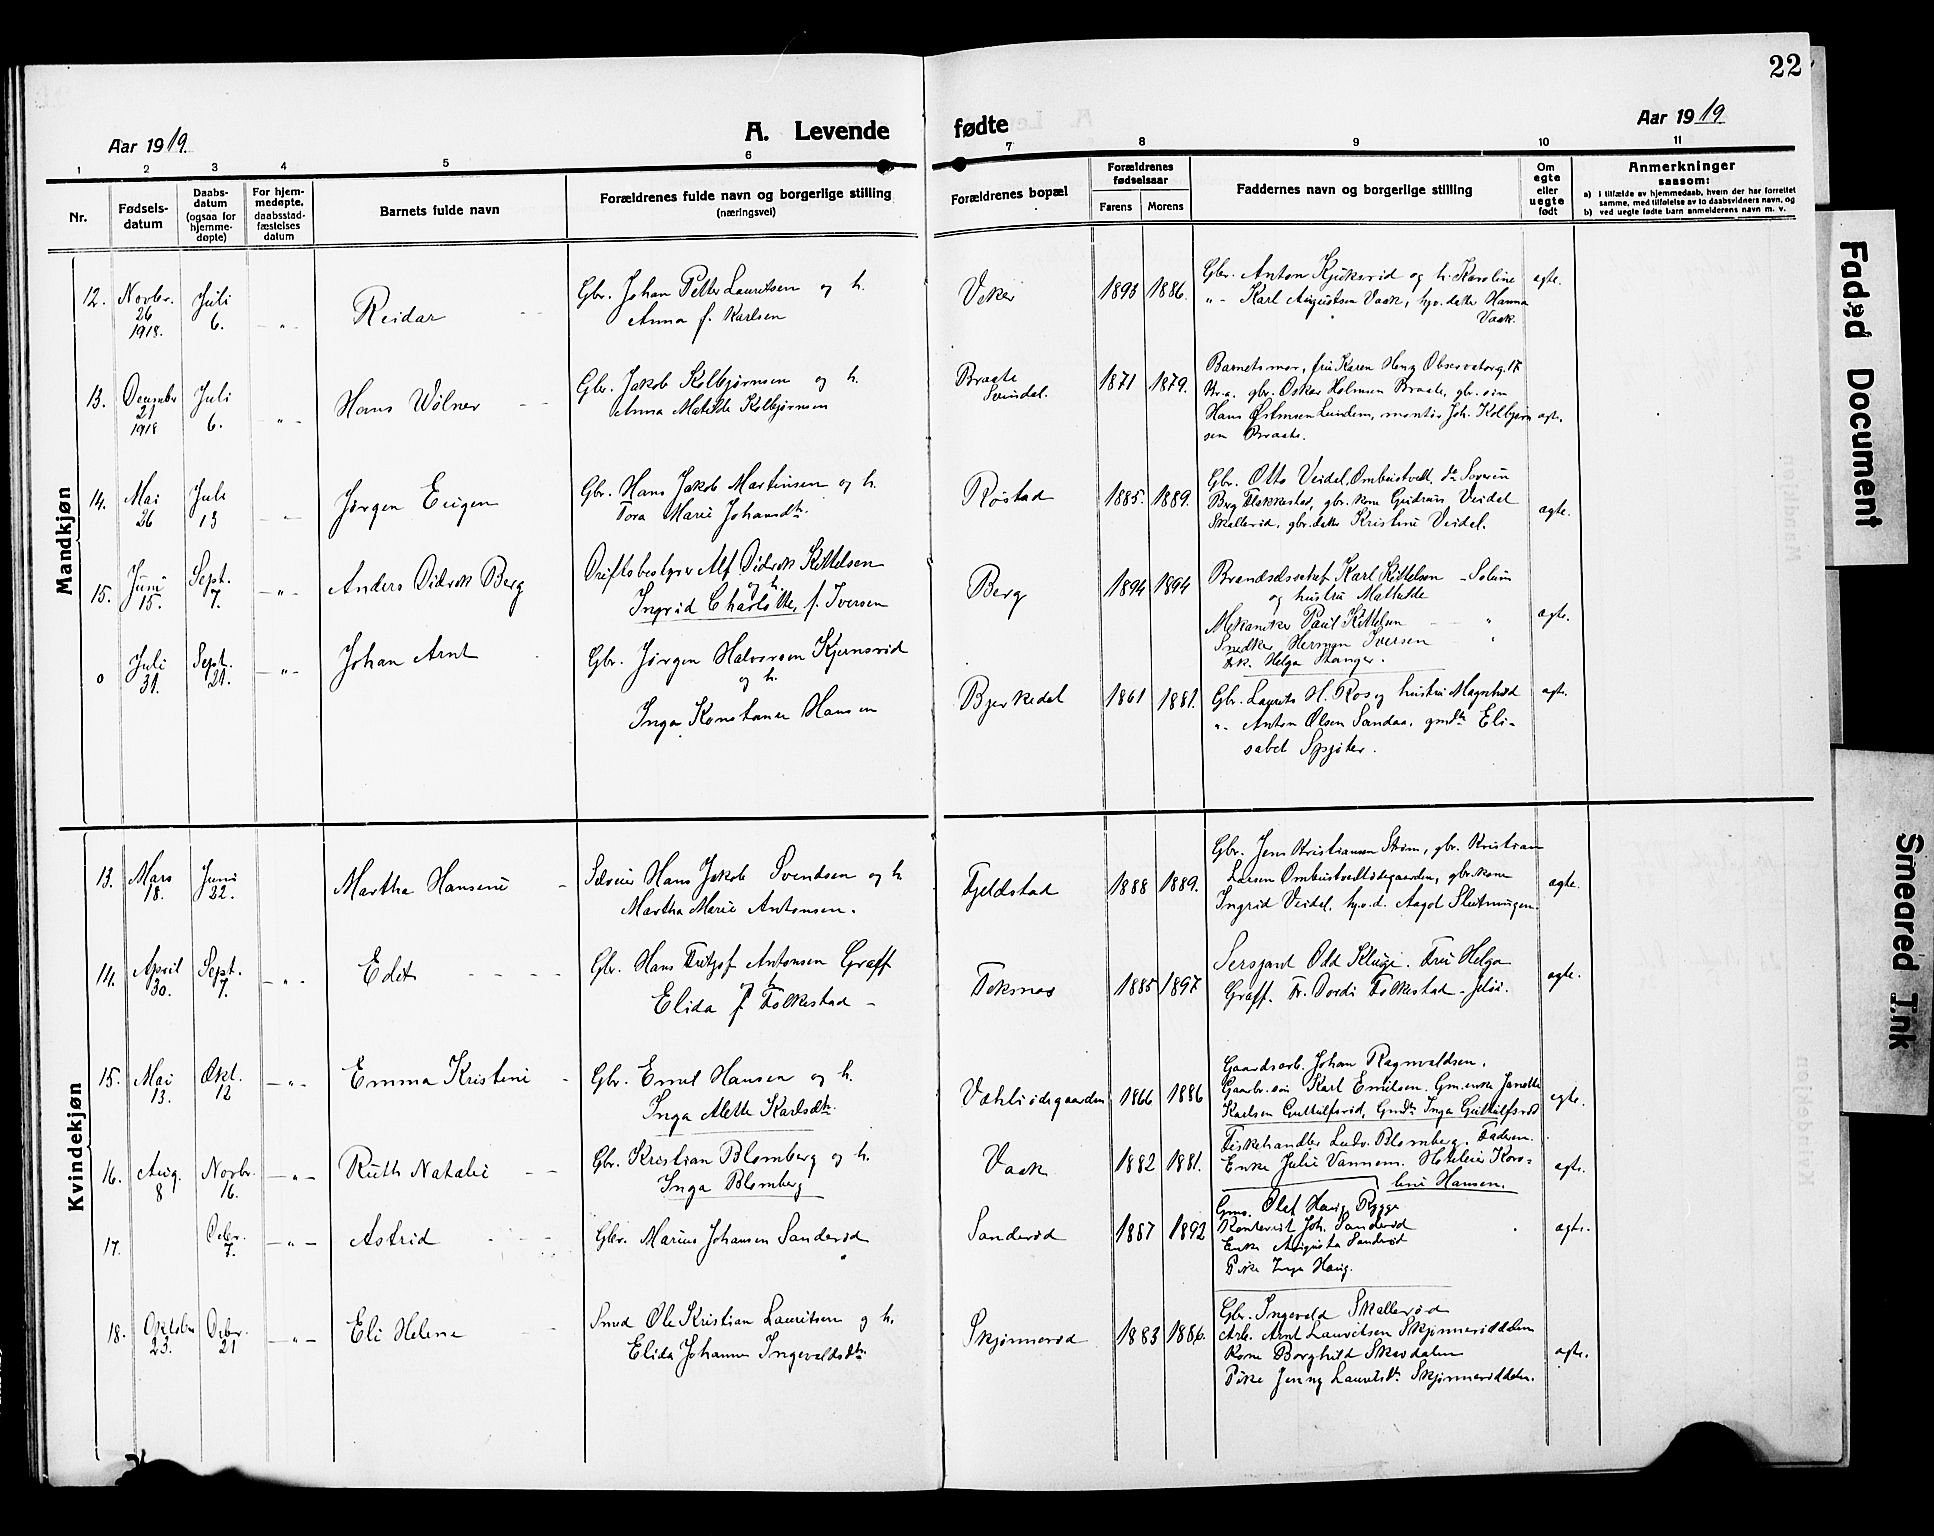 22
Aar 1919.
A. Levende fødte
Aar 1919
1 2 3 4 5 6 7 8 9 10 11
Nr.
Fødselsdatum
Daabsdatum (ogsaa for hjemmedøpte)
For hjemmedøpte. daabsstadfæstelses datum
Barnets fulde navn
Forældrenes fulde navn og borgerlige stilling (næringsvei)
Forældrenes bopæl
Forældrenes fødselsaar
Farens Morens
Faddernes navn og borgerlige stilling
Om egte eller uegte født
Anmerkninger saasom:
a) i tilfælde av hjemmedaab, hvem der har forrettet samme, med tilføielse av to daabsvidners navn, og
b) ved uegte fødte barn anmelderens navn m. v.
Mandkjøn
12. Novbr. 26 1918. Juli 6. -"- Reidar
Gbr. Johan Petter Lauritsen og h.
Anna f. Karlsen
Veker 1893 1886.
Gbr. Anton Kjüksrød og h. Karoline
"- Karl Augustsen Vaak, hp.v. datter Hanna
Vaak.
agte.
13. Decembr 21 1918 Juli 6. -"- Hans Wölner
Gbr. Jakob Kolbjørnsen og h.
Anna Matilde Kolbjørnsen
Braate Svindal. 1871 1879.
Barnets mor, frü Karen Henz Observatorg. 17
Kr.a. gbr. Oskar Holmsen Braate, gbr. søn
Hans Østensen Lundem, montør Joh. Kolbjørn
sen Braate.
agte.
14. Mai 26 Juli 13 - Jørgen Eugen
Gbr. Hans Jakob Martinsen og h.
Tora Marie Johansdtr.
Røstad 1885. 1889.
Gbr. Otto Veidel, Ombustvedt, do Soverin
Berg Flakkestad, gbr. kone Gudrun Veidel
Skallerød, gbr. datter Kristine Veidel.
agte.
15. Juni 15. Sept. 7. -"- Anders Didrik Berg
Driftsbestyrer Alf Didrik Kittelsen
og h.
Ingrid Charlotte, f. Iversen
Berg 1894 1894
Brandselsschef Karl Kittelsen - Solum
og hustru Mathilde
Mekaniker Paul Kittelsen - "
Snedker Herman Iversen - "
Frk. Helga Stanger.
agte.
0 Juli 31. Sept. 21. -"- Johan Arnt
Gbr. Jørgen Halvorsen Kjernsrød
og h.
Inga Konstance Hansen
Bjerkedal 1861 1881.
Gbr. Laurits H. Ros og hustru Magnhild
"- Anton Olsen Sandaa, gmdtr Eli-
sabet Spjøter.
agte.
Kvindekjøn
13. Mars 18. Juni 22. Martha Hansine
Sæveier Hans Jakob Svendsen og h
Martha Marie Antonsen.
Fjeldstad 1888 1889.
Gbr. Jens Kristiansen Strøm, gbr. Kristian
Larsen Ombustvedtødegaarden, gbr. kone
Ingrid Veidel, hp.v.d. Aagot Slutningen.
agte.
14. April 30. Sept. 7. -"- Edit
Gbr. Hans Fritjof Antonsen Graff
og h
Elida f Folkestad -
Foksnes 1885 1897
Sersjant Odd Kluge. Fru Helga
Graff. Fr. Dordi Folkestad - Jeløi.
agte.
15. Mai 13. Okt. 12 -"- Emma Kristine
Gbr. Emil Hansen og h.
Inga Alette Karlsdtr.
Vøktüødegaarden 1866 1886
Gaardsarb. Johan Ragnvaldsen,
Gaardbr. søn Karl Emilsen. Gm.enke Janette
Karlsen Guttulfsrød, Gmdtr Inga Guttulfsrød
egte.
16. Aug. 8 Novbr. 16. -"- Ruth Natalie
Gbr. Kristian Blomberg og h.
Inga Blomberg
Vaak 1882 1881.
Fiskehandler Ludv. Blomberg. Faderen.
Enke Julie Vannem. Hoteleier Karo-
line Hansen.
agte.
17. Debr. 7. -"- Astrid
Gbr. Marius Johansen Sanderød
Sanderød 1887 1892
Gme. Olet Haug Rygge
Kontorist Joh. Sanderød
Enke Augusta Sanderød
Pike Inga Haug.
agte.
18. Oktober 23. Debr. 21 -"- Eli Helene
Smed Ole Kristian Lauritsen og h.
Elida Johanne Ingevaldsdtr.
Skjønnerød 1883 1886.
Gbr. Ingevald Skallerød
Arb. Arnt Lauritsen Skjønnerøddalen
Kone Borghild Skavdalen
Pike Jenny Lauritsdtr Skjønnerøddalen.
agte.
Faded Document
Smeared Ink